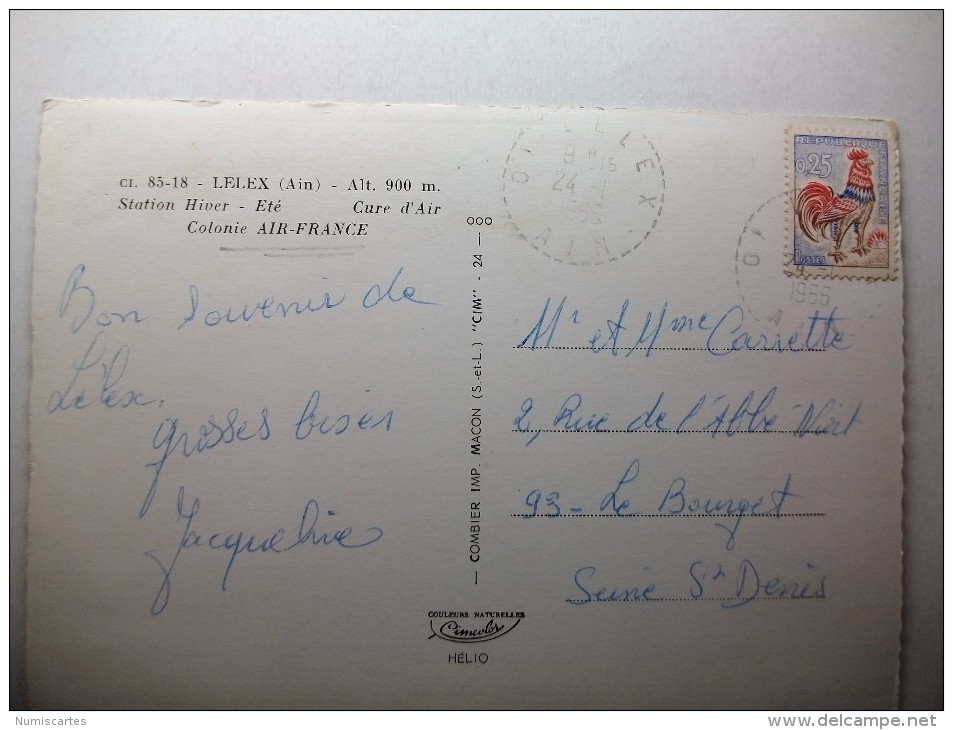 CI. 85-18 - LELEX (Ain) - Alt. 900 m.
Station Hiver - Eté Cure d'Air
Colonie AIR-FRANCE
Bon souvenir de
Lélex.
grosses bises
Jacqueline
— COMBIER IMP. MACON (S.-et-L.) "CIM" - 24 — 000
COULEURS NATURELLES
Cimcolor
HÉLIO
LELEX
24
AIN
REPUBLIQUE FRANÇAISE
0,25
POSTES
24
1966
Mr et Mme Carrette
2, Rue de l'Abbé Niort
93 - Le Bourget
Seine St Denis
Numiscartes
www.delcampe.net